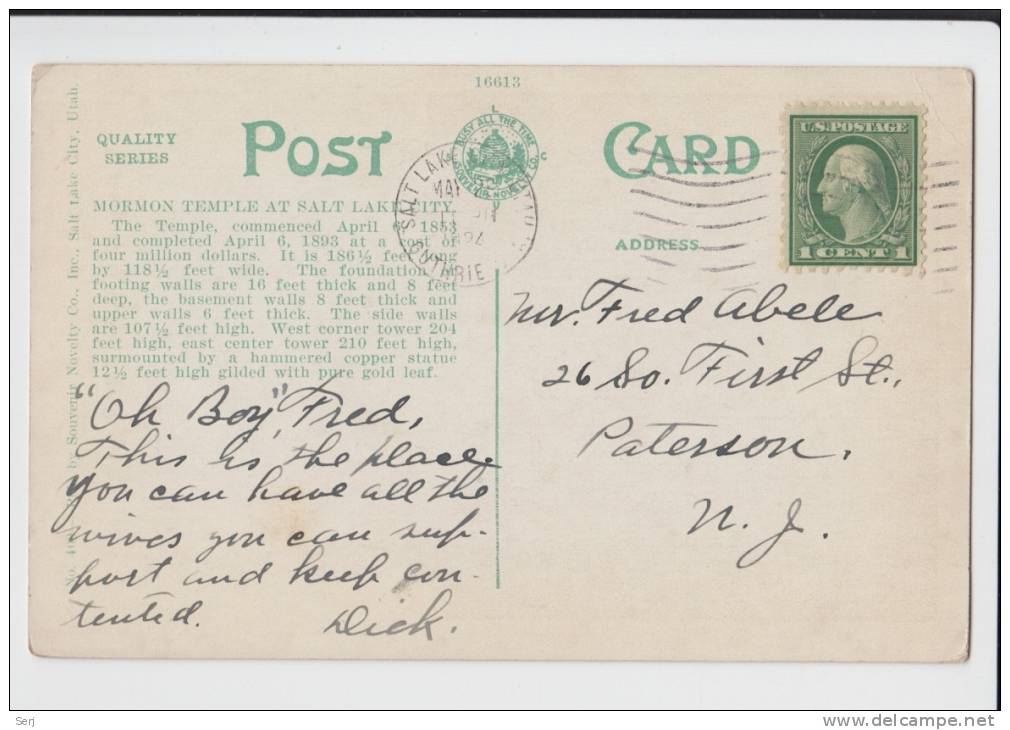 16613
QUALITY
SERIES
POST CARD
BUSY ALL THE TIME
SOUVENIR NOVELTY CO.
L
C
U.S. POSTAGE
1 CENT 1
SALT LAKE
MORMON TEMPLE AT SALT LAKE CITY.
The Temple, commenced April 6, 1853
and completed April 6, 1893 at a cost of
four million dollars. It is 186½ feet long
by 118½ feet wide. The foundation
footing walls are 16 feet thick and 8 feet
deep, the basement walls 8 feet thick and
upper walls 6 feet thick. The side walls
are 107½ feet high. West corner tower 204
feet high, east center tower 210 feet high,
surmounted by a hammered copper statue
12½ feet high gilded with pure gold leaf.
ADDRESS
by Souvenir Novelty Co., Inc., Salt Lake City, Utah.
"Oh Boy," Fred,
This is the place
you can have all the
wives you can sup-
port and keep con-
tented. Dick.
Mr. Fred Abele
26 So. First St.,
Paterson,
N. J.
Serj
www.delcampe.net